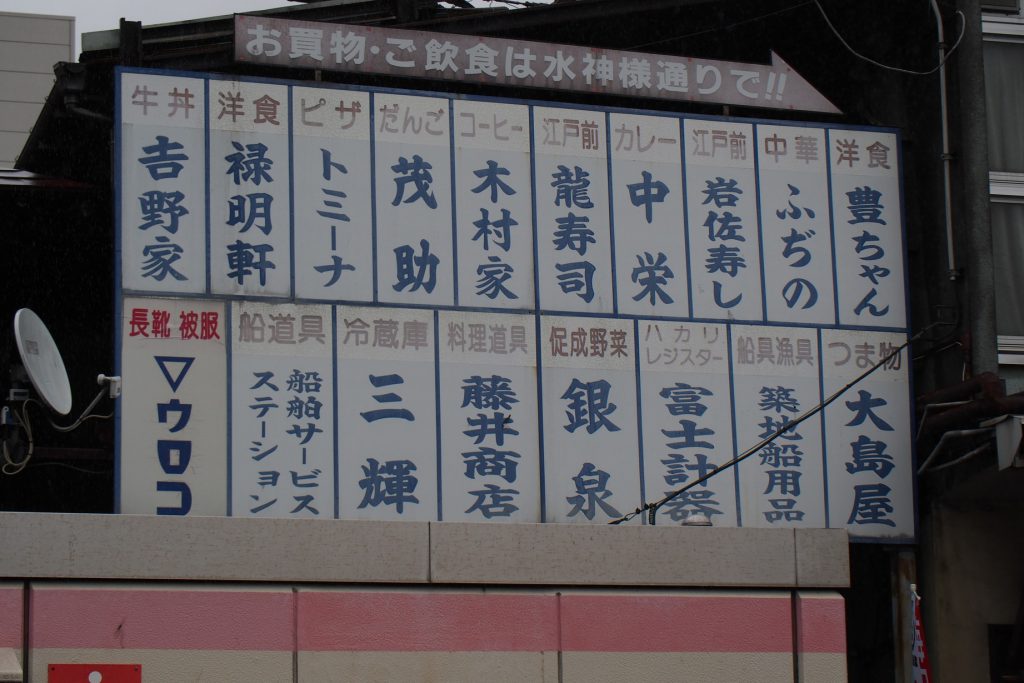 お買物・ご飲食は水神様通りで!!
牛丼
吉野家
洋食
禄明軒
ピザ
トミーナ
だんご
茂助
コーヒー
木村家
江戸前
龍寿司
カレー
中栄
江戸前
岩佐寿し
中華
ふぢの
洋食
豊ちゃん
長靴 被服
▽ウロコ
船道具
船舶サービス
ステーション
冷蔵庫
三輝
料理道具
藤井商店
促成野菜
銀泉
ハカリ
レジスター
富士計器
船具漁具
築地船用品
つま物
大島屋